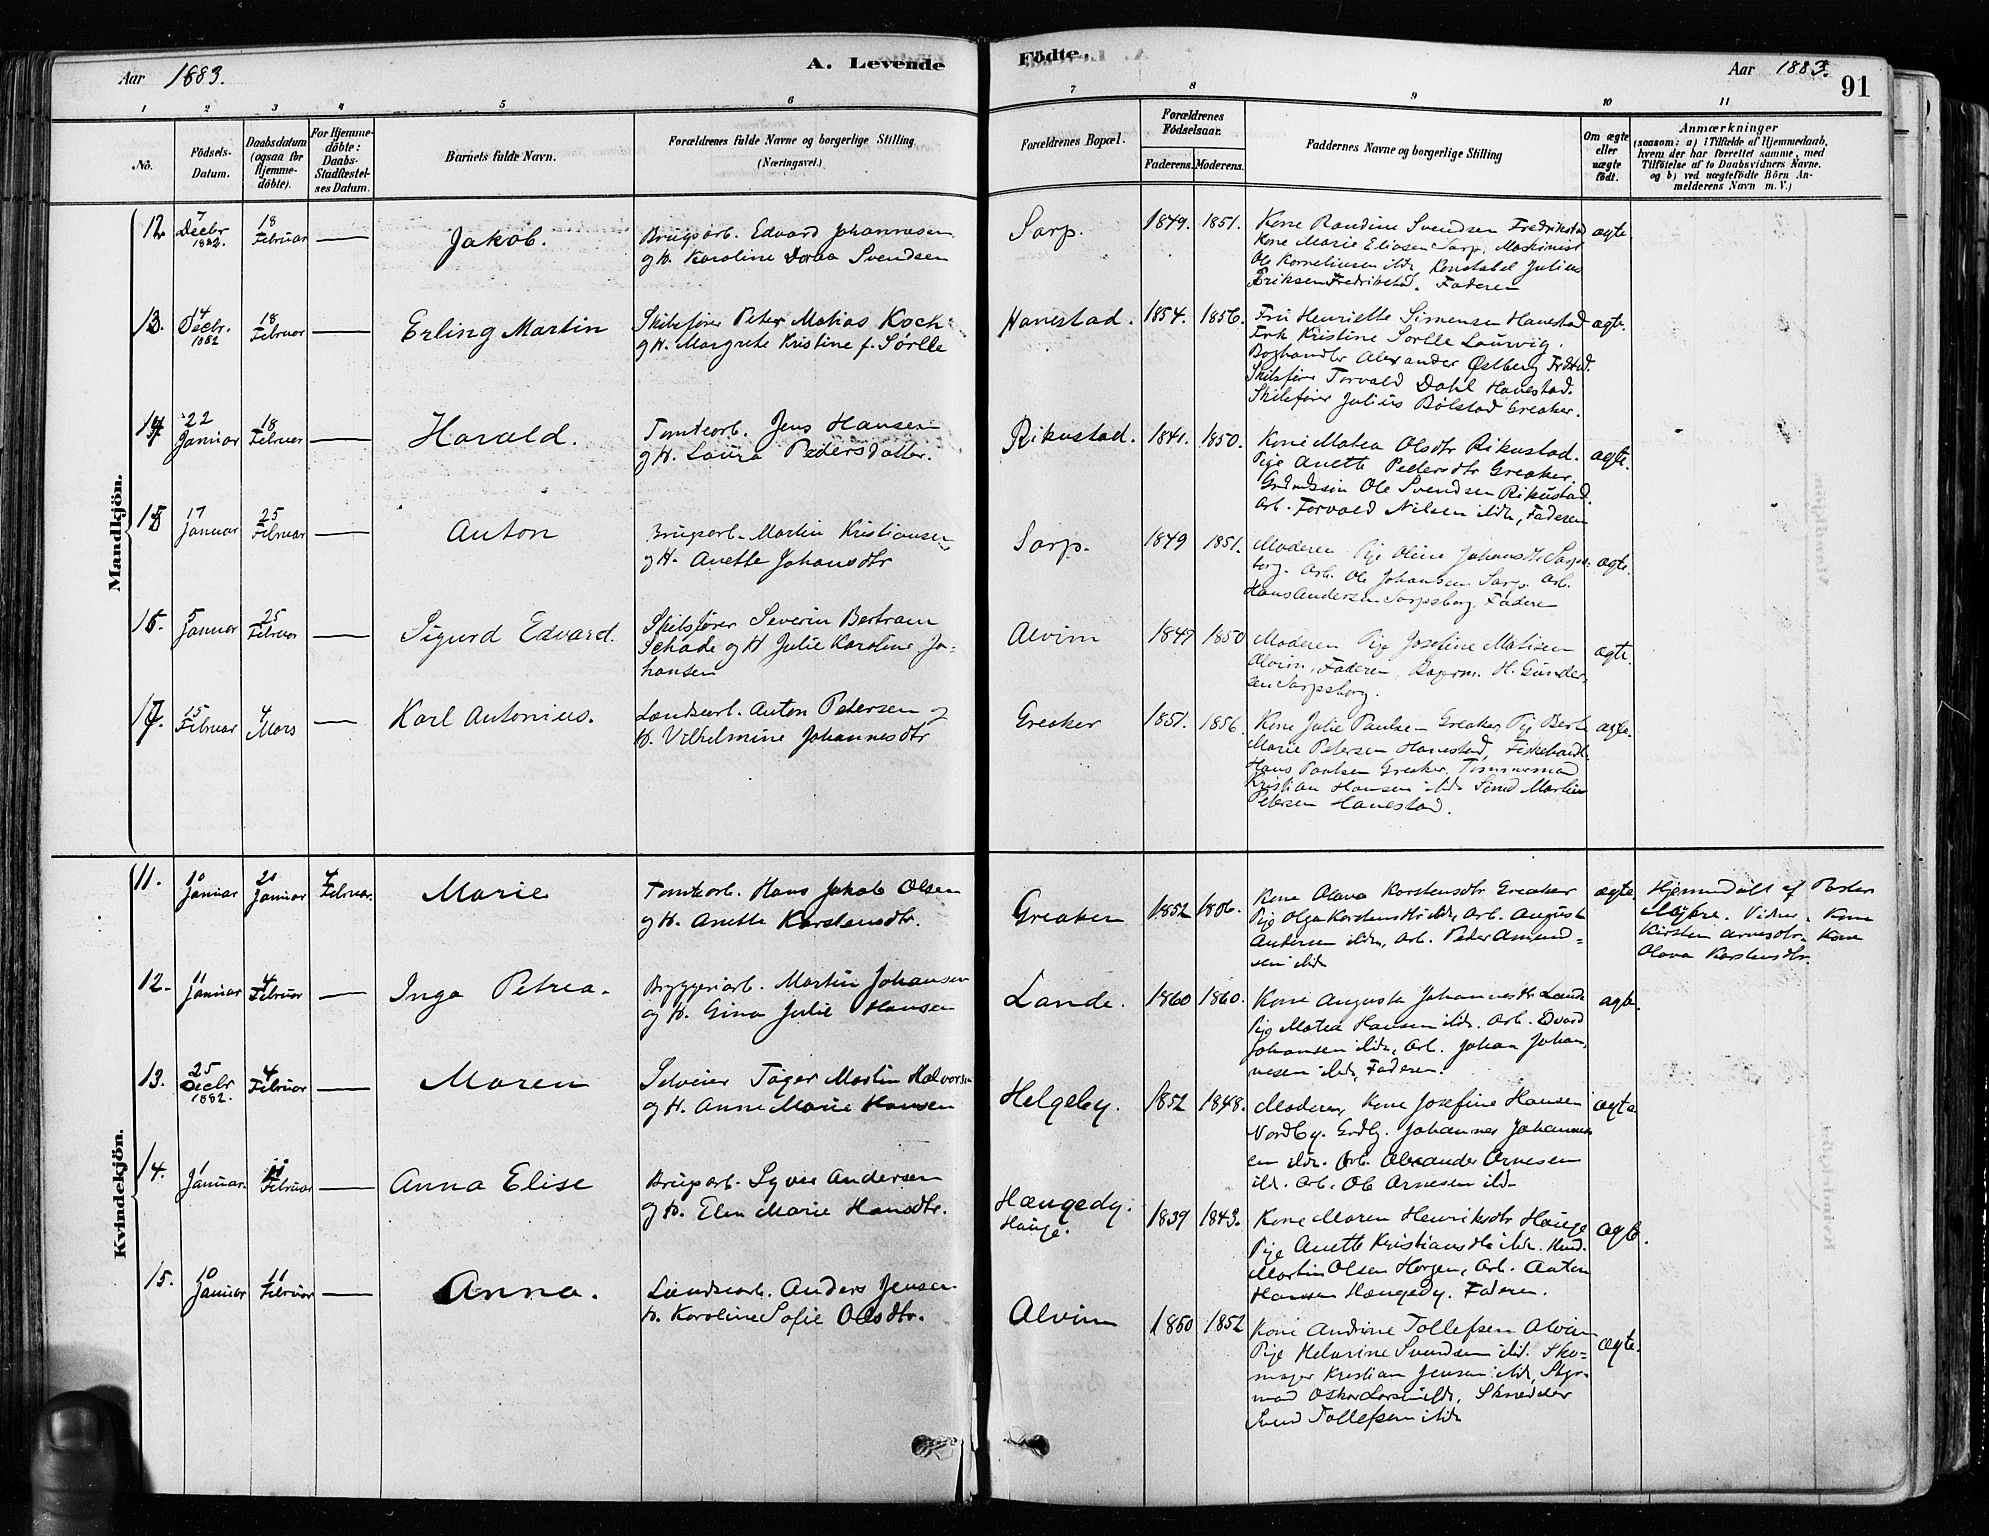 Aar 1883. A. Levende Födte. Aar 1883. 91
1 2 3 4 5 6 7 8 9 10 11
No. Födsels-Datum. Daabsdatum (ogsaa for Hjemmedöbte). For Hjemmedöbte: Daabs-Stadfæstelses Datum. Barnets fulde Navn. Forældrenes fulde Navne og borgerlige Stilling (Næringsvei.) Forældrenes Bopæl. Forældrenes Födselsaar. Faderens. Moderens. Faddernes Navne og borgerlige Stilling Om ægte eller uægte födt. Anmærkninger (saasom: a) i Tilfælde af Hjemmedaab, hvem der har forrettet samme, med Tilföielse af to Daabsvidners Navne. og b) ved uægtefödte Börn Anmelderens Navn m. V.)
Mandkjön.
12. 7 Decbr 1882. 18 Februar — Jakob. Brugsarb. Edvard Johannesen
og H. Karoline Dorthea Svendsen
Sarp. 1849. 1851. Kone Randine Svendsen Fredrikstad ægte.
Kone Marie Eliasen Sarp, Maskinist
Ole Korneliusen ibdm, Konstabel Julius
Eriksen Fredrikstad. Faderen
13. 14 Decbr. 1882 18 Februar — Erling Martin Skibsfører Peter Matias Koch
og H. Margrete Kristine f. Sørlle
Hanestad. 1854. 1856. Fru Henriette Simensen Hanestad ægte.
Frk Kristine Sørlle Laurvig.
Boghandler Alexander Østberg Frdstad.
Skibsfører Torvald Dahl Hanestad.
Skibsfører Julius Bølstad Greaker.
14. 22 Januar 18 Februar — Harald. Tomtearb. Jens Hansen
og H. Laura Pedersdatter.
Rikustad. 1841. 1850. Kone Matea Olsdtr Rikustad. ægte.
Pige Anette Pedersdtr Greaker.
Ole Svendsen Rikustad.
Arb. Torvald Nilsen ibdm, Faderen
15 17 Januar 25 Februar — Anton Brugsarb. Martin Kristiansen
og H. Anette Johansdtr
Sarp. 1849 1851. Moderen Pige Oline Johansdtr Sarps- ægte.
borg. Arb. Ole Johansen Sarp. Arb.
Hans Andersen Sarpsborg, Faderen
16. 5 Januar 25 Februar — Sigurd Edvard. Skibsfører Severin Bertram
Schade og H Julie Karoline Jo-
hansen
Alvim 1847 1850 Moderen Pige Josefine Matisen ægte.
Alvim, Faderen, H. Gunder-
sen Sarpsborg.
17. 15 Februar 4 Mars — Karl Antonius. Landsarb. Anton Petersen og
H. Vilhelmine Johannesdtr
Greaker 1851. 1856. Kone Julie Paulsen Greaker, Pige Berte ægte.
Marie Petersen Hanestad, Fiskehandl.
Hans Paulsen Greaker, Tømmermand
Kristian Hansen ibdm Martin
Petersen Hanestad.
Kvindekjön.
11. 10 Januar 20 Januar 4 Februar. Marie Tomtearb. Hans Jakob Olsen
og H. Anette Karstensdtr.
Greaker 1852 1856. Kone Olava Karstensdtr Greaker ægte.
Pige Olga Karstensdtr ibdm, Arb. August
Andersen ibdm, Arb. Peder Amund-
sen ibdm
Hjemmedøbt af
Vidner. Kone
Kirsten Arnesdtr. Kone
Olava Karstensdtr.
12. 11 Januar 4 Februar — Inga Petrea. Bryggeriarb. Martin Johansen
og H. Gina Julie Hansen
Lande. 1860 1860. Kone Auguste Johannesdtr Lande ægte.
Pige Matea Hansen ibdm. Arb. Edvard
Johansen ibdm, Arb. Johan Johan-
nesen ibdm, Faderen.
13. 25 Decbr 1882. 4 Februar — Maren Selveier Martin Halvorsen
og H. Anne Marie Hansen
Helgeby. 1852 1848. Moderen, Kone Josefine Hansen ægte
Nordby. Grdbr. Johannes Johannes-
sen ibdm. Arb. Alexander Arnesen
ibdm. Arb. Ole Arnesen ibdm
14. 1 Januar. 11 Februar — Anna Elise Brugsarb. Syver Andersen
og H. Elen Marie Hansdtr.
Hængedy. Hauge. 1839 1843. Kone Maren Henriksdtr Hauge ægte.
Pige Anette Kristiansdtr ibdm.
Martin Olsen Hørgen, Arb. Anton
Hansen Hængedy. Faderen.
15. 10 Januar 11 Februar — Anna. Landsarb. Anders Jensen
H. Karoline Sofie Olsdtr.
Alvim 1850 1852 Kone Andrine Tollefsen Alvim ægte.
Pige Helarine Svendsen ibdm. Sko-
mager Kristian Jensen ibdm, Styr-
mand Oskar Larsen ibdm, Skredder
Svend Tollefsen ibdm